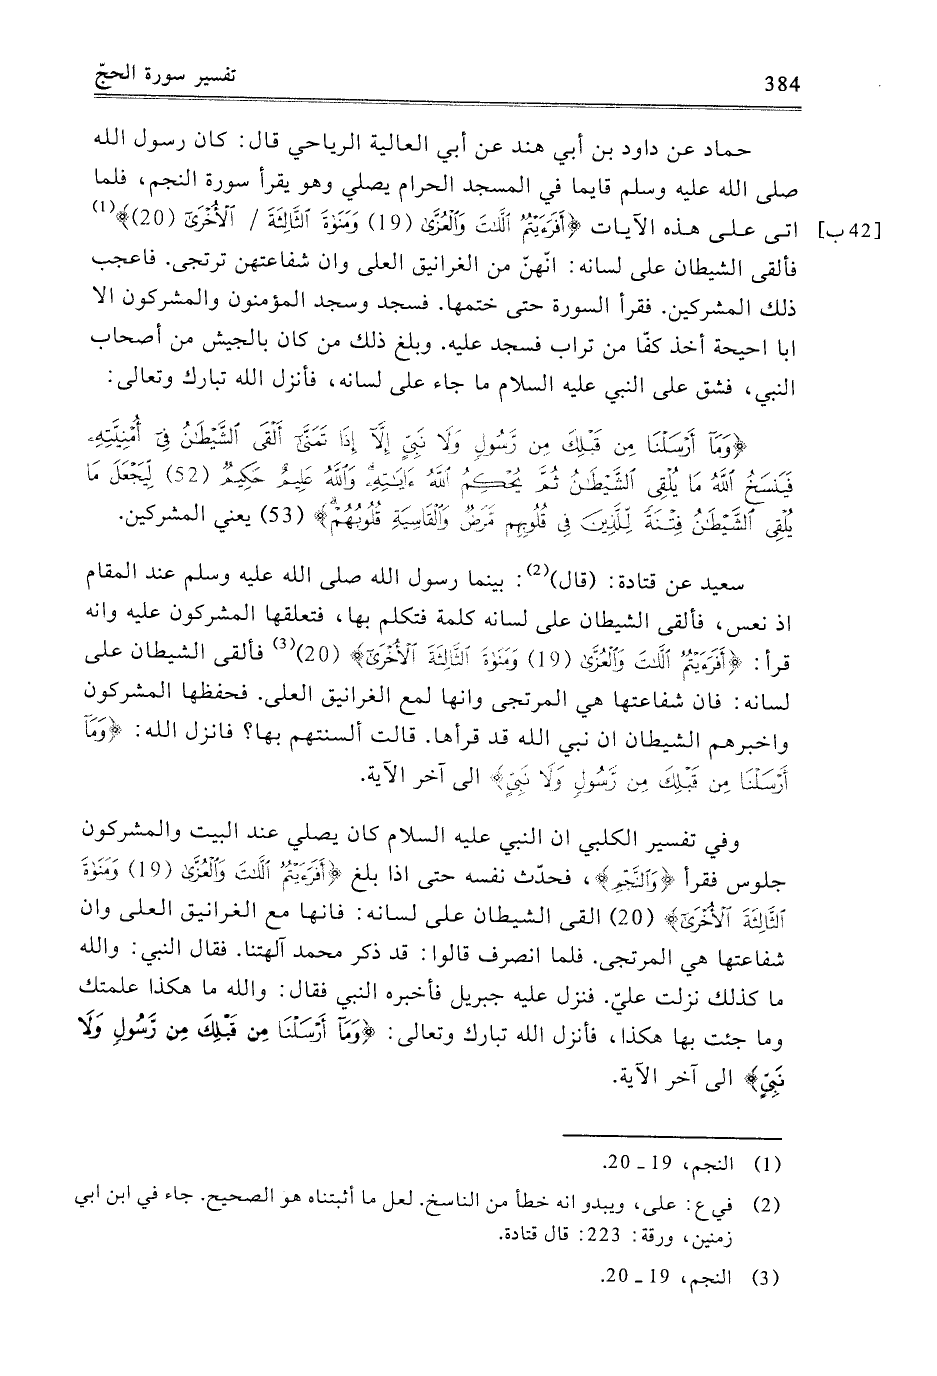 384
تفسير سورة الحجّ
حماد عن داود بن أبي هند عن أبي العالية الرياحي قال: كان رسول الله
صلى الله عليه وسلم قايما في المسجد الحرام يصلي وهو يقرأ سورة النجم، فلما
[42ب] اتى على هذه الآيات ﴿أَفَرَءَيْتُمُ ٱللَّٰتَ وَٱلْعُزَّىٰ (19) وَمَنَوٰةَ ٱلثَّالِثَةَ / ٱلْأُخْرَىٰٓ (20)﴾(1)
فألقى الشيطان على لسانه: انّهنّ من الغرانيق العلى وان شفاعتهن ترتجى. فاعجب
ذلك المشركين. فقرأ السورة حتى ختمها. فسجد وسجد المؤمنون والمشركون الا
ابا احيحة أخذ كفّا من تراب فسجد عليه. وبلغ ذلك من كان بالجيش من أصحاب
النبي، فشق على النبي عليه السلام ما جاء على لسانه، فأنزل الله تبارك وتعالى:
﴿وَمَآ أَرْسَلْنَا مِن قَبْلِكَ مِن رَّسُولٍ وَلَا نَبِىٍّ إِلَّآ إِذَا تَمَنَّىٰٓ أَلْقَى ٱلشَّيْطَٰنُ فِىٓ أُمْنِيَّتِهِۦ
فَيَنسَخُ ٱللَّهُ مَا يُلْقِى ٱلشَّيْطَٰنُ ثُمَّ يُحْكِمُ ٱللَّهُ ءَايَٰتِهِۦ ۗ وَٱللَّهُ عَلِيمٌ حَكِيمٌ (52) لِّيَجْعَلَ مَا
يُلْقِى ٱلشَّيْطَٰنُ فِتْنَةً لِّلَّذِينَ فِى قُلُوبِهِم مَّرَضٌ وَٱلْقَاسِيَةِ قُلُوبُهُمْ ۗ﴾ (53) يعني المشركين.
سعيد عن قتادة: (قال)(2): بينما رسول الله صلى الله عليه وسلم عند المقام
اذ نعس، فألقى الشيطان على لسانه كلمة فتكلم بها، فتعلقها المشركون عليه وانه
قرأ: ﴿أَفَرَءَيْتُمُ ٱللَّٰتَ وَٱلْعُزَّىٰ (19) وَمَنَوٰةَ ٱلثَّالِثَةَ ٱلْأُخْرَىٰٓ﴾ (20)(3) فألقى الشيطان على
لسانه: فان شفاعتها هي المرتجى وانها لمع الغرانيق العلى. فحفظها المشركون
واخبرهم الشيطان ان نبي الله قد قرأها. قالت ألسنتهم بها؟ فانزل الله: ﴿وَمَآ
أَرْسَلْنَا مِن قَبْلِكَ مِن رَّسُولٍ وَلَا نَبِىٍّ﴾ الى آخر الآية.
وفي تفسير الكلبي ان النبي عليه السلام كان يصلي عند البيت والمشركون
جلوس فقرأ ﴿وَٱلنَّجْمِ﴾، فحدّث نفسه حتى اذا بلغ ﴿أَفَرَءَيْتُمُ ٱللَّٰتَ وَٱلْعُزَّىٰ (19) وَمَنَوٰةَ
ٱلثَّالِثَةَ ٱلْأُخْرَىٰٓ﴾ (20) القى الشيطان على لسانه: فانها مع الغرانيق العلى وان
شفاعتها هي المرتجى. فلما انصرف قالوا: قد ذكر محمد آلهتنا. فقال النبي: والله
ما كذلك نزلت عليّ. فنزل عليه جبريل فأخبره النبي فقال: والله ما هكذا علمتك
وما جئت بها هكذا، فأنزل الله تبارك وتعالى: ﴿وَمَآ أَرْسَلْنَا مِن قَبْلِكَ مِن رَّسُولٍ وَلَا
نَبِىٍّ﴾ الى آخر الآية.
(1) النجم، 19 ـ 20.
(2) في ع: على، ويبدو انه خطأ من الناسخ. لعل ما أثبتناه هو الصحيح. جاء في ابن ابي
زمنين، ورقة: 223: قال قتادة.
(3) النجم، 19 ـ 20.